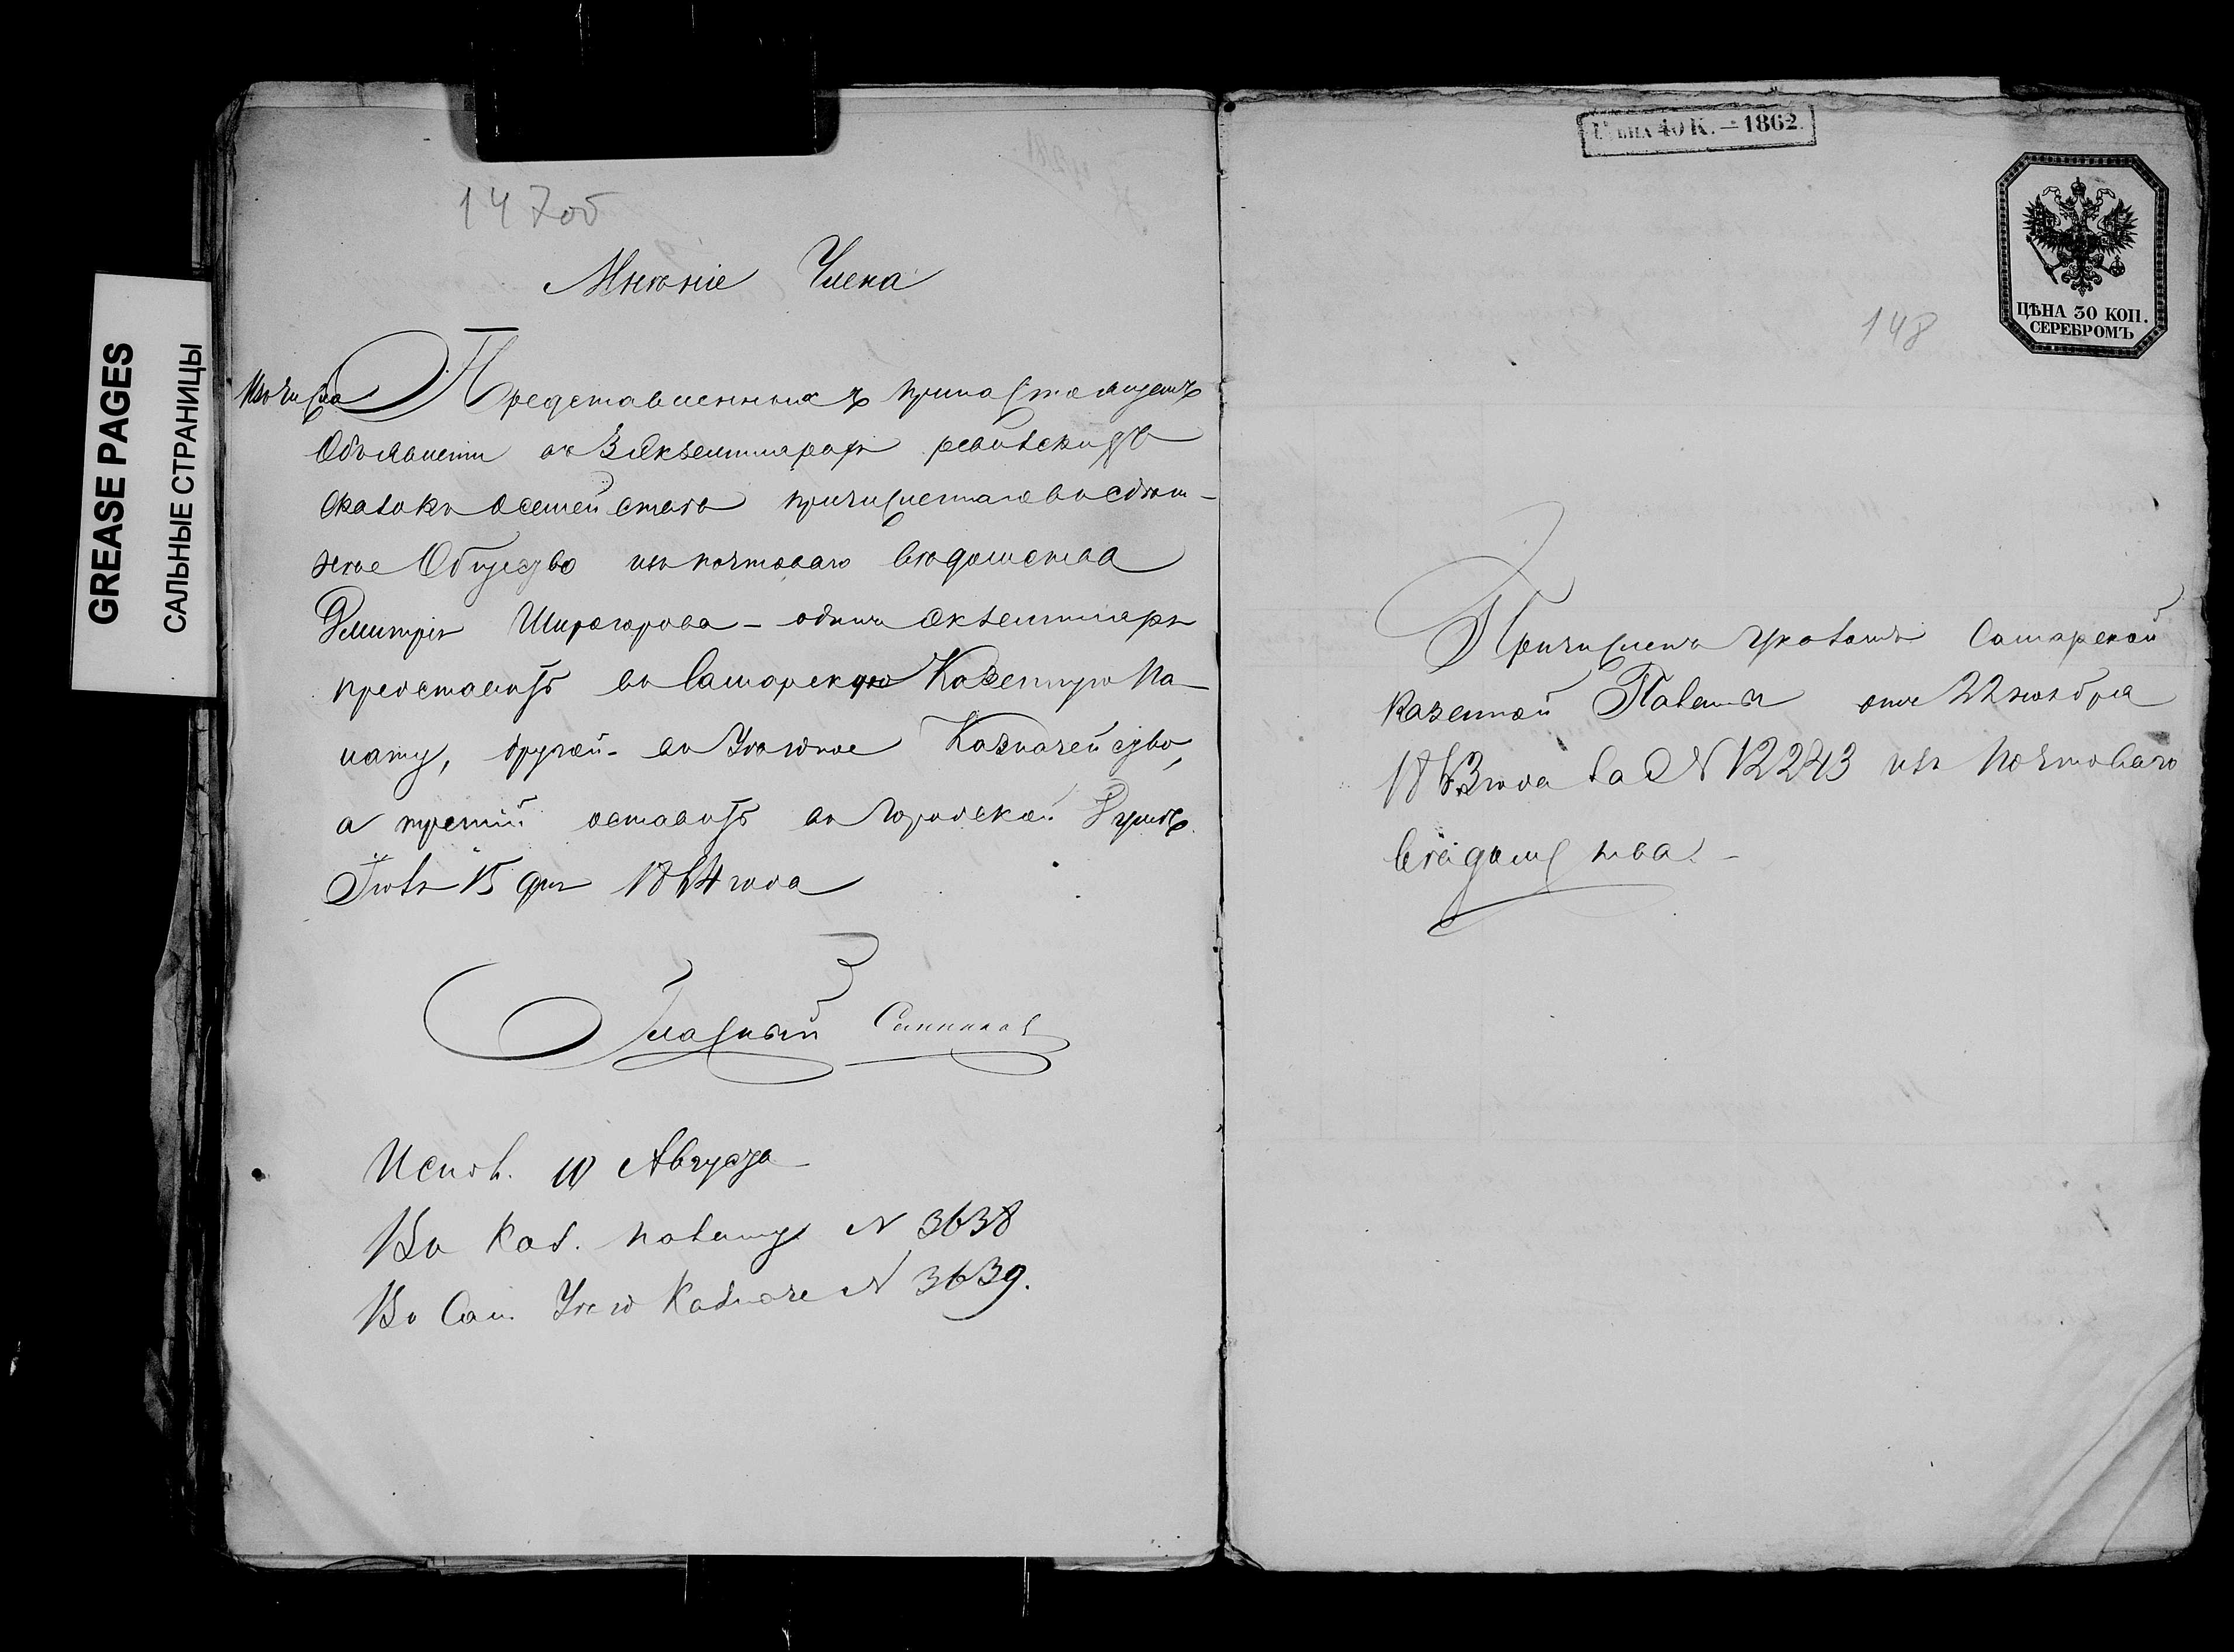 GREASE PAGES
САЛЬНЫЕ СТРАНИЦЫ
147об
Мнѣніе Члена
Изъ числа Представленныхъ при настоящемъ
Объявленіи 3 экземпляровъ ревизскихъ
сказокъ о семействѣ причисленнаго въ здѣш-
нее Общество изъ почтоваго вѣдомства
Дмитрія Широгорова - одинъ экземпляръ
представить въ Самарскую Казенную Па-
лату, другой - въ Уѣздное Казначейство,
а третій оставить въ Городской Думѣ.
Іюля 15 дня 1864 года
Гласный
Испол. 10 Августа
Въ Каз. палату N 3638
Въ Сам. Уѣзд Казначе N 3639.
ЦѢНА 40 К. - 1862.
ЦѢНА 30 КОП.
СЕРЕБРОМЪ
148
Причисленъ Указомъ Самарской
Казенной Палаты отъ 22 ноября
1863 года за N 12243 изъ Почтоваго
вѣдомства. -